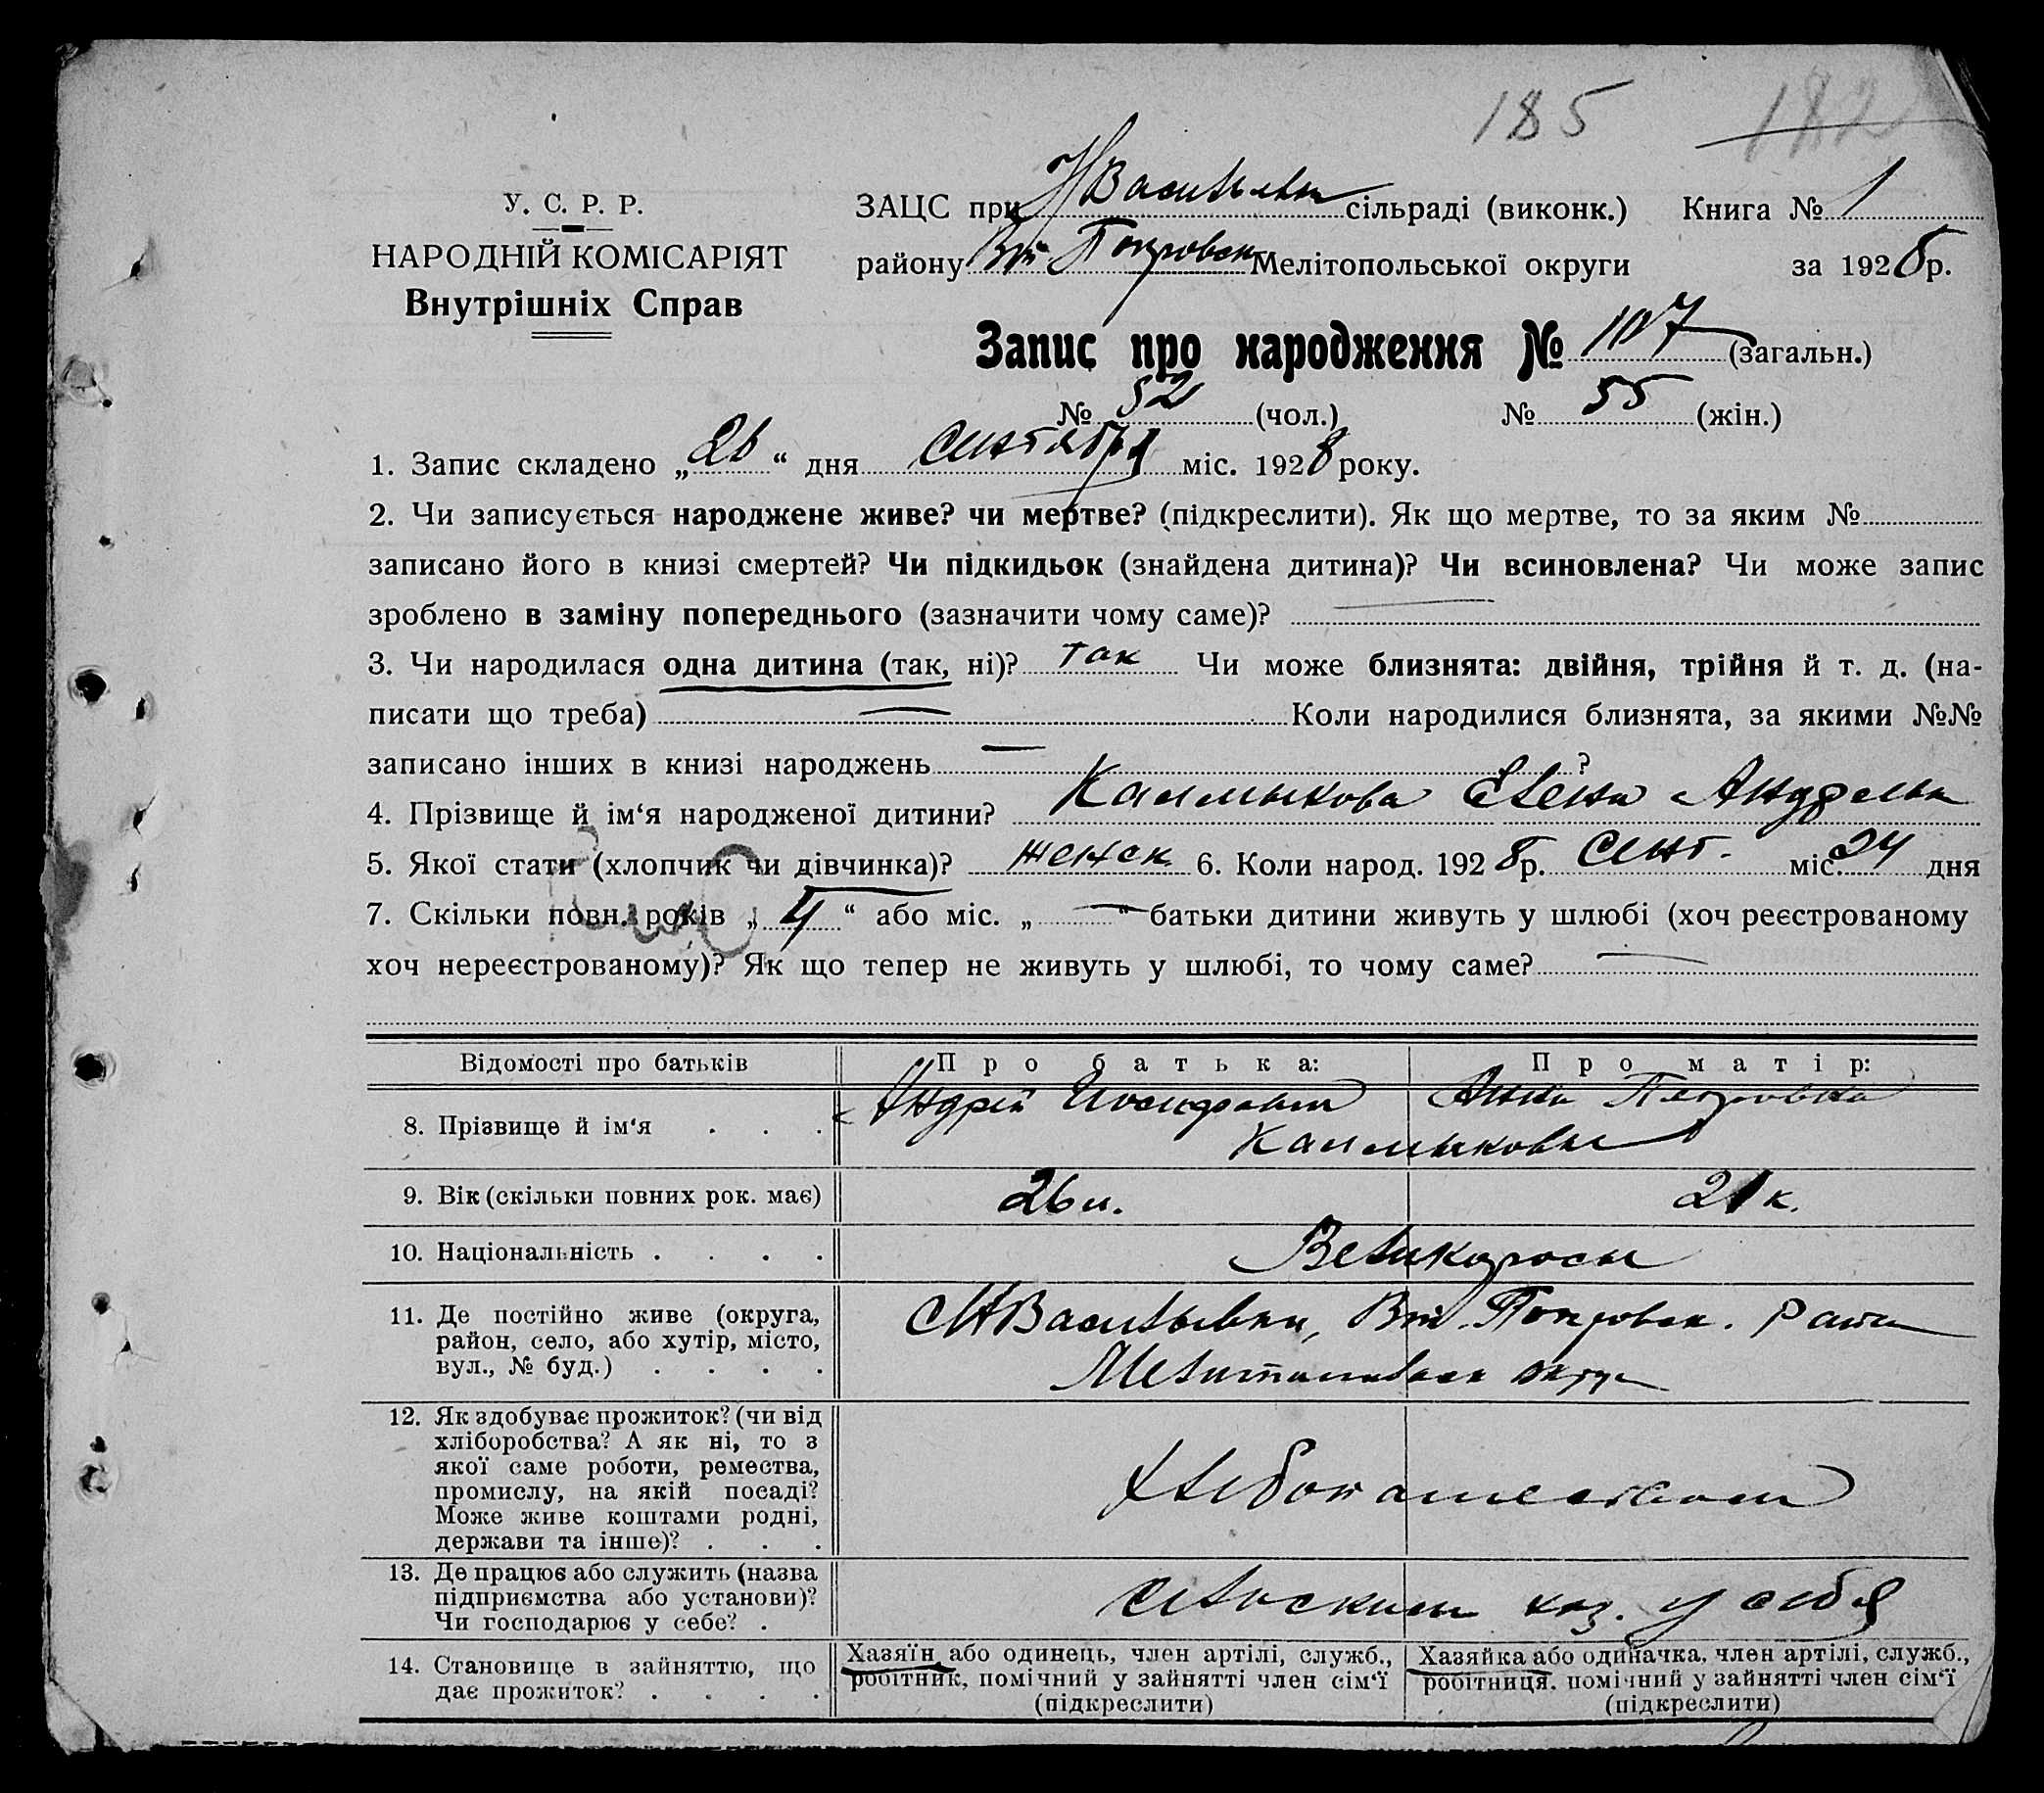 185 182
У. С. Р. Р.
НАРОДНІЙ КОМІСАРІЯТ
Внутрішніх Справ
ЗАЦС при НВасильевк сільраді (виконк.) Книга № 1
району Вт Покровск Мелітопольської округи за 1928 р.
Запис про народження № 107 (загальн.)
№ 52 (чол.) № 55 (жін.)
1. Запис складено „26“ дня Сентября міс. 1928 року.
2. Чи записується народжене живе? чи мертве? (підкреслити). Як що мертве, то за яким №
записано його в книзі смертей? Чи підкидьок (знайдена дитина)? Чи всиновлена? Чи може запис
зроблено в заміну попереднього (зазначити чому саме)? —
3. Чи народилася одна дитина (так, ні)? так Чи може близнята: двійня, трійня й т. д. (на-
писати що треба) — Коли народилися близнята, за якими №№
записано інших в книзі народжень — ?
4. Прізвище й ім‘я народженої дитини? Калмыкова Елена Андреевн
5. Якої стати (хлопчик чи дівчинка)? женск 6. Коли народ. 1928 р. Сент. міс. 24 дня
7. Скільки повн. років „4“ або міс. „—“ батьки дитини живуть у шлюбі (хоч реєстрованому
хоч нереєстрованому)? Як що тепер не живуть у шлюбі, то чому саме? —
Відомості про батьків Про батька: Про матір:
8. Прізвище й ім‘я . . . Андрей Иосифович Анна Петровна
Калмыковы
9. Вік (скільки повних рок. має) 26 л. 21 л.
10. Національність . . . . Великоросы
11. Де постійно живе (округа,
район, село, або хутір, місто,
вул., № буд.) . . . .
НВасильевки, Вт. Покровск. района
Мелитопольск округ
12. Як здобуває прожиток? (чи від
хліборобства? А як ні, то з
якої саме роботи, ремества,
промислу, на якій посаді?
Може живе коштами родні,
держави та інше)? . . .
Хлебопашеством
13. Де працює або служить (назва
підприємства або установи)?
Чи господарює у себе? .
сельским хоз. у себя
14. Становище в зайняттю, що
дає прожиток? . . . .
Хазяїн або одинець, член артілі, служб.,
робітник, помічний у зайнятті член сім‘ї
(підкреслити)
Хазяйка або одиначка, член артілі, служб.,
робітниця, помічний у зайнятті член сім‘ї
(підкреслити)